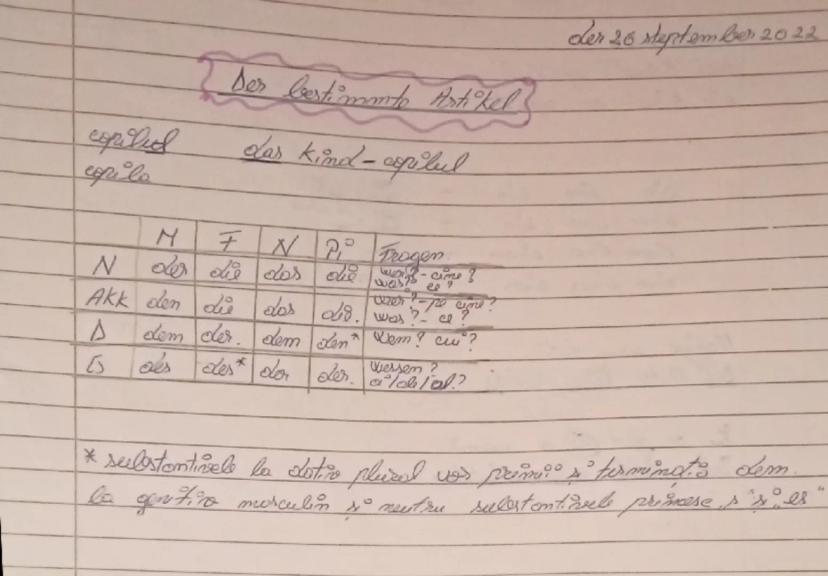 den 26 september 2022
Der bestimmte Artikel
copilul das Kind - copilul
copila
M F N Pl Fragen
N der die das die wer? - cine?
was? ce?
AKK den die das die. wen? - pe cine?
was? - ce?
D dem der. dem den* Wem? cui?
G des des* der der. wessen?
a/al/ai/ale?
* substantivele la dativ plural vor primi și terminația
la genitiv masculin și neutru substantivele primesc "s", "es"